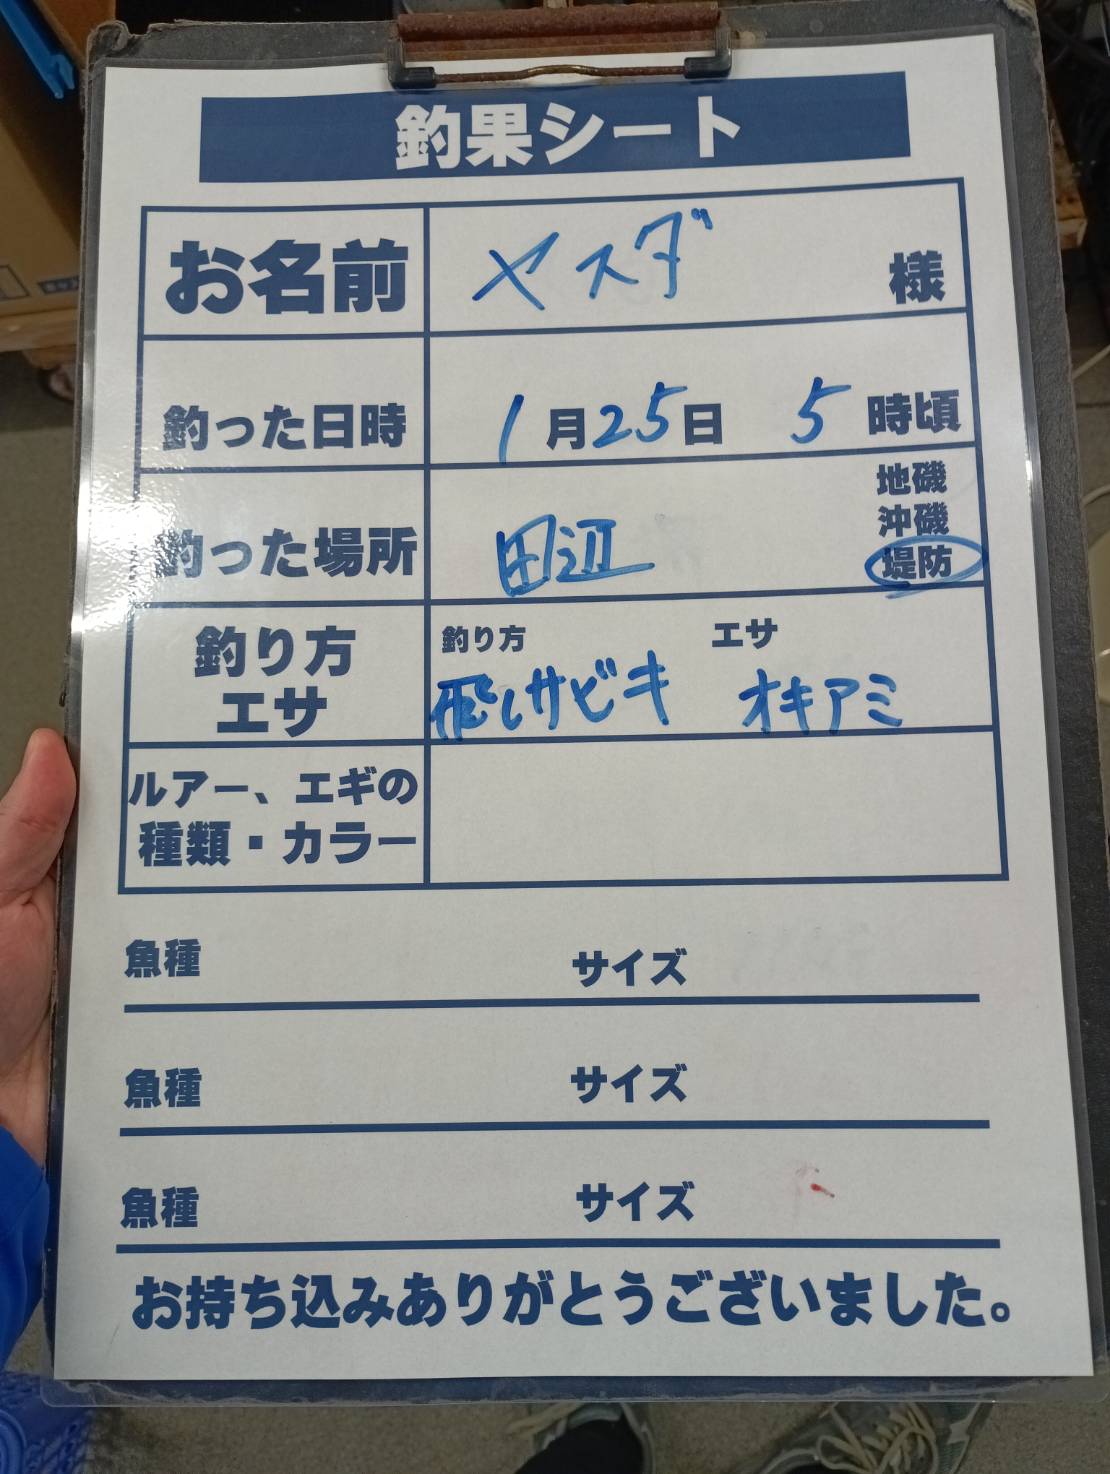 釣果シート
お名前 ヤスダ 様
釣った日時 1月25日 5時頃
地磯
沖磯
釣った場所 田辺 堤防
釣り方 エサ
釣り方
エサ
飛しサビキ オキアミ
ルアー、エギの
種類・カラー
魚種 サイズ
魚種 サイズ
魚種 サイズ
お持ち込みありがとうございました。